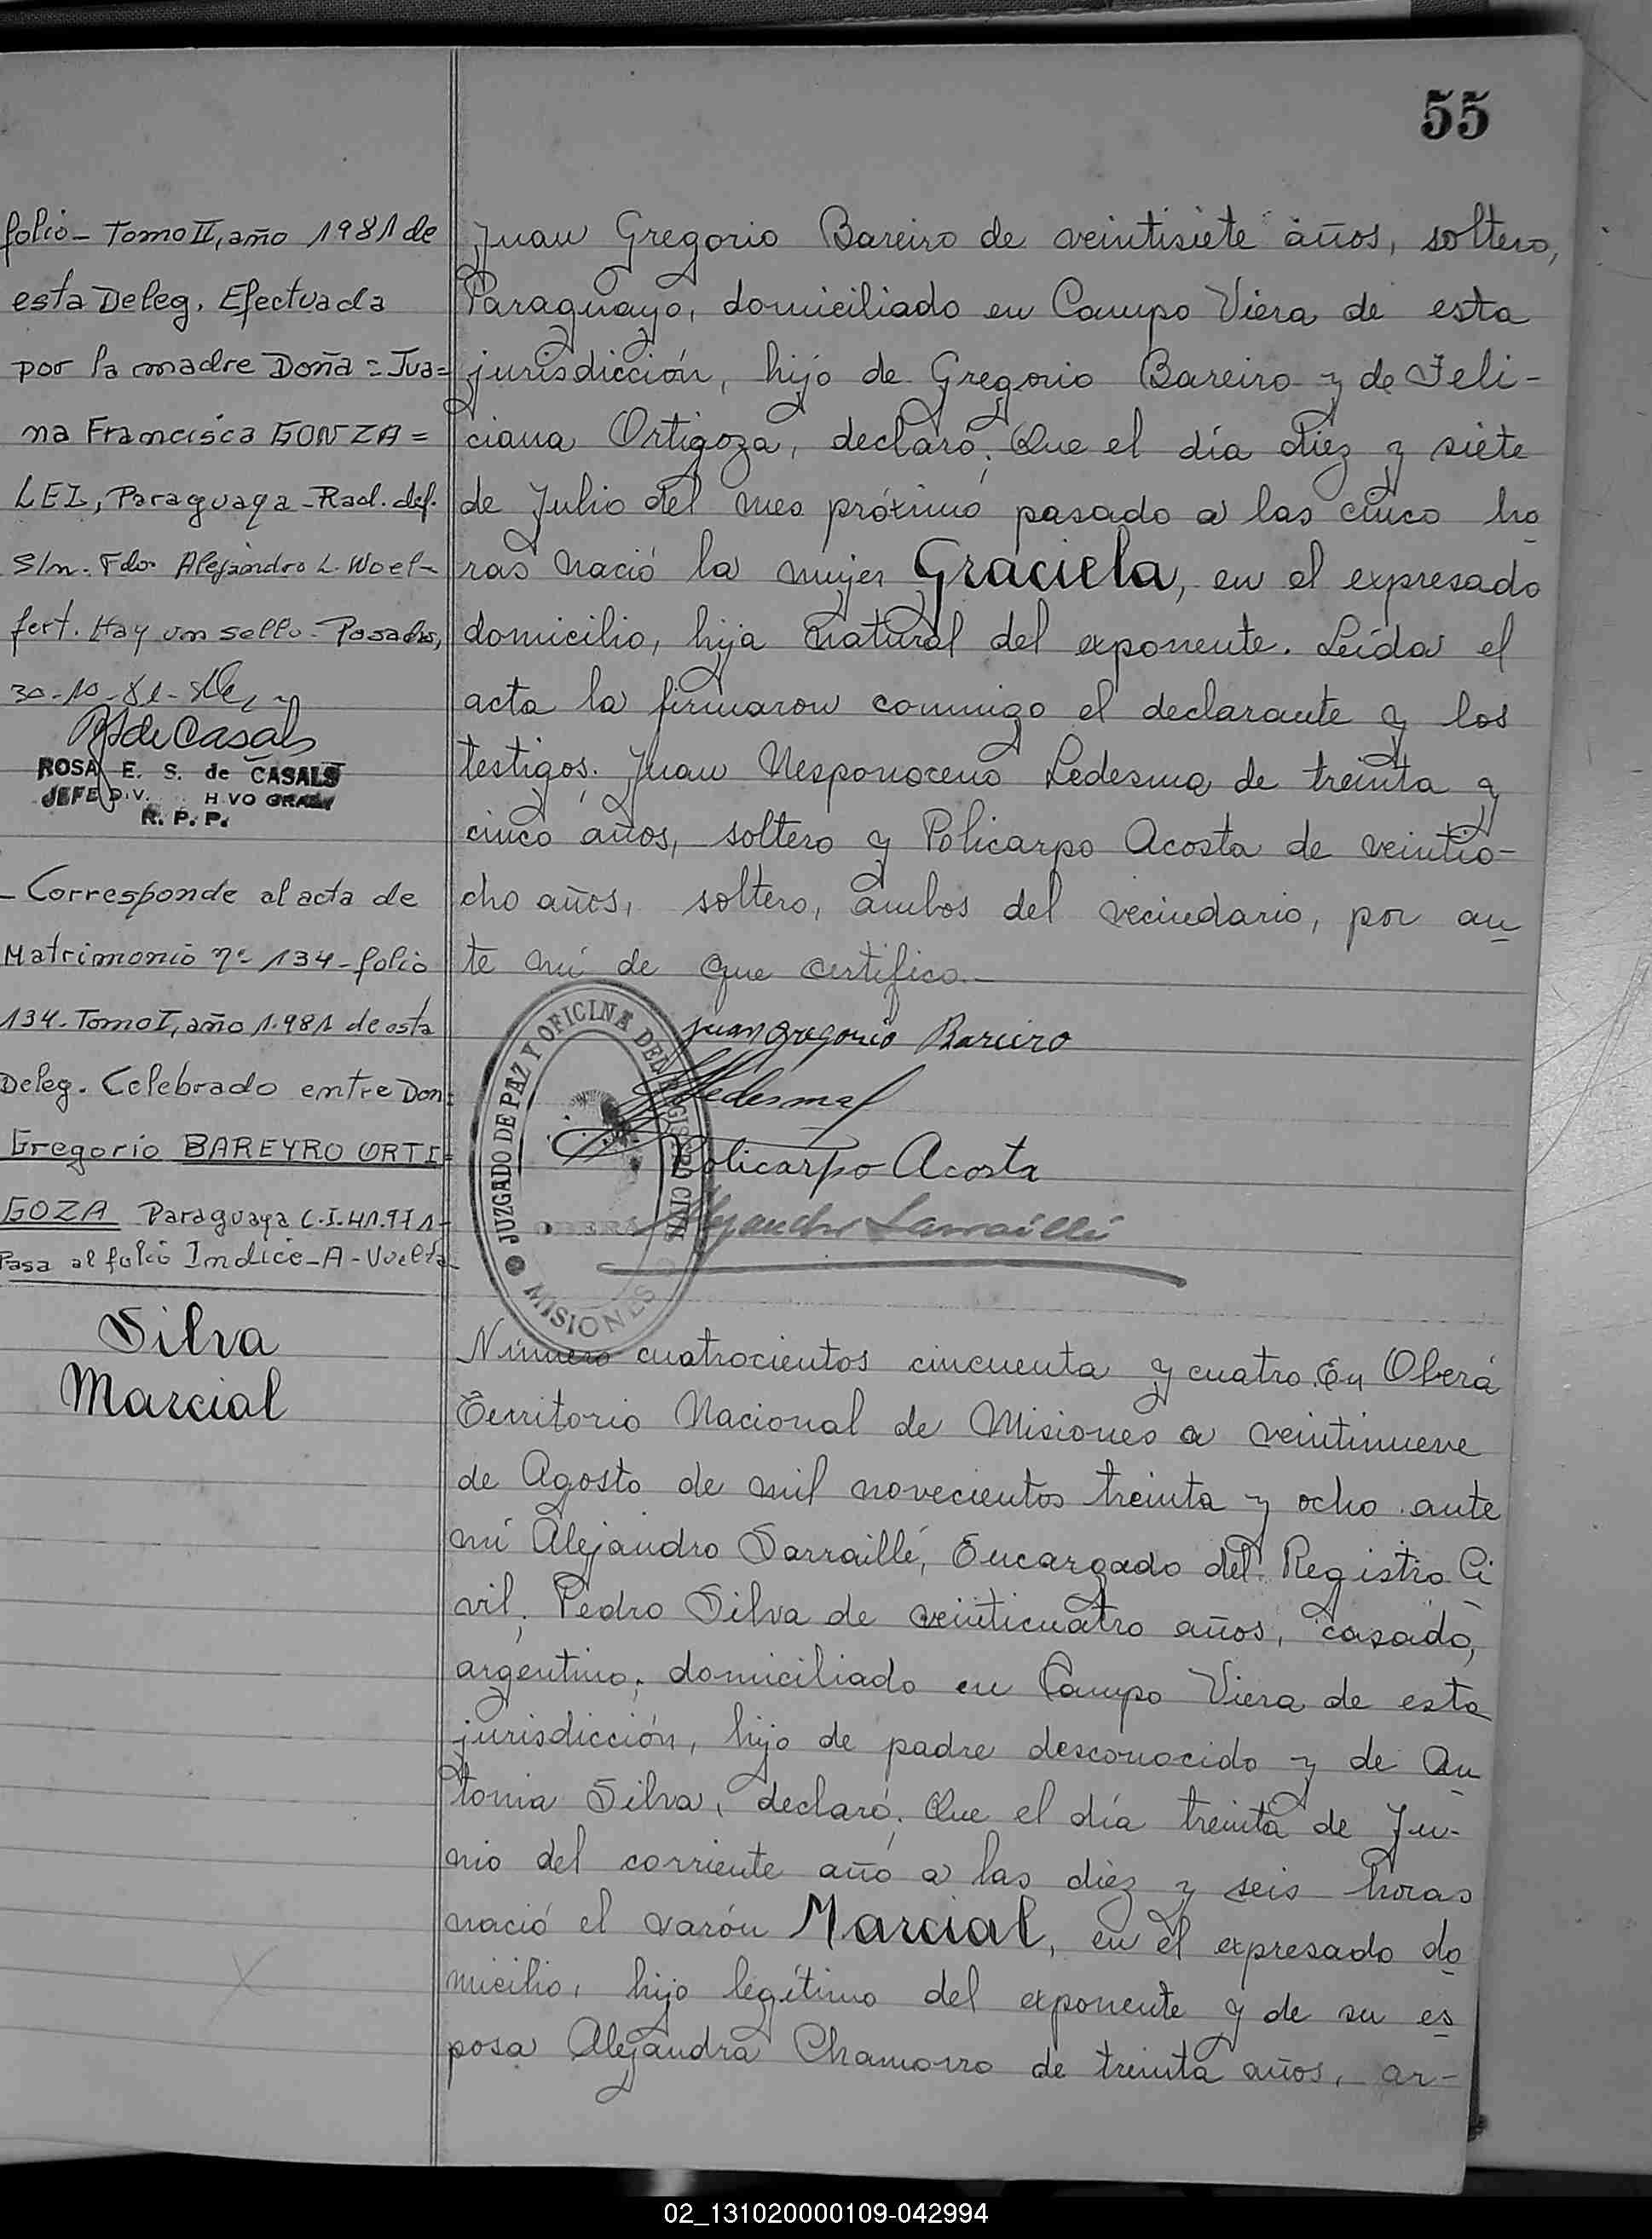 55
folio - Tomo II, año 1981 de
esta Deleg. Efectuada
por la madre Doña = Jua=
na Francisca GONZA=
LEZ, Paraguaya - Rad. def.
S/n. Fdo. Alejandro L. Woel-
fert. Hay un sello - Posadas,
30-10-81-
ROSA E. S. de CASALS
JEFE DIV. H VO GRAL
R. P. P.
- Corresponde al acta de
Matrimonio nº 134 - folio
134. Tomo I, año 1.981 de esta
Deleg. Celebrado entre Don:
Gregorio BAREYRO ORTI=
GOZA Paraguaya C.I. 411.971-
Pasa al folio Indice - A - Vuelta
Juan Gregorio Bareiro de veintisiete años, soltero,
Paraguayo, domiciliado en Campo Viera de esta
jurisdicción, hijo de Gregorio Bareiro y de Feli-
ciana Ortigoza, declaró: Que el día diez y siete
de Julio del mes próximo pasado a las cinco ho
ras nació la mujer Graciela, en el expresado
domicilio, hija natural del exponente. Leída el
acta la firmaron conmigo el declarante y los
testigos: Juan Nesponoceno Ledesma de treinta y
cinco años, soltero y Policarpo Acosta de veintio-
cho años, soltero, ambos del vecindario, por an
te mí de que certifico.-
Juan Gregorio Bareiro
Ledesma
Policarpo Acosta
Alejandro Sarraillé
JUZGADO DE PAZ Y OFICINA DEL REGISTRO CIVIL
OBERÁ
MISIONES
Silva
Marcial
Número cuatrocientos cincuenta y cuatro. En Oberá
Territorio Nacional de Misiones a veintinueve
de Agosto de mil novecientos treinta y ocho ante
mí Alejandro Sarraillé, Encargado del Registro Ci
vil; Pedro Silva de veinticuatro años, casado,
argentino, domiciliado en Campo Viera de esta
jurisdicción, hijo de padre desconocido y de An
tonia Silva, declaró: Que el día treinta de Ju-
nio del corriente año a las diez y seis horas
nació el varón Marcial, en el expresado do
micilio, hijo legítimo del exponente y de su es
posa Alejandra Chamorro de treinta años, ar-
02_131020000109-042994